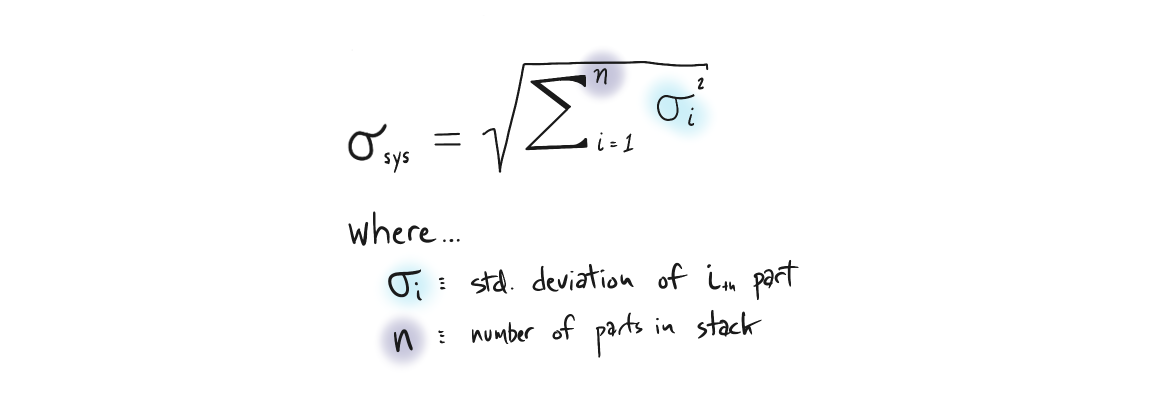 σ_sys = √ Σ^n_i=1 σ_i^2
where...
σ_i ≡ std. deviation of i_th part
n ≡ number of parts in stack